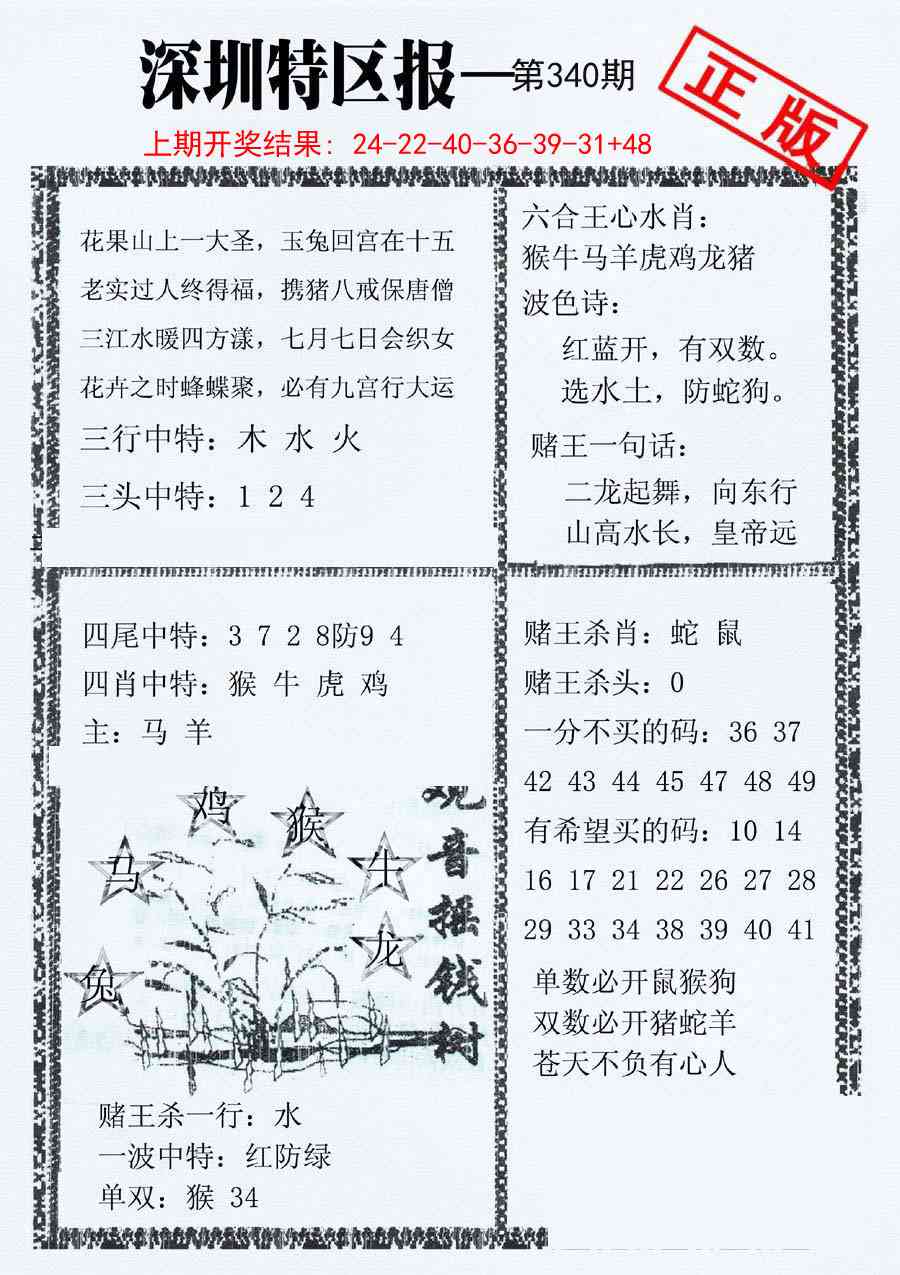 深圳特区报—第340期
正版
上期开奖结果: 24-22-40-36-39-31+48
花果山上一大圣，玉兔回宫在十五
老实过人终得福，携猪八戒保唐僧
三江水暖四方漾，七月七日会织女
花卉之时蜂蝶聚，必有九宫行大运
三行中特：木 水 火
三头中特：1 2 4
六合王心水肖：
猴牛马羊虎鸡龙猪
波色诗：
红蓝开，有双数。
选水土，防蛇狗。
赌王一句话：
二龙起舞，向东行
山高水长，皇帝远
四尾中特：3 7 2 8防9 4
四肖中特：猴 牛 虎 鸡
主：马 羊
鸡
猴
马
牛
龙
兔
观音摇钱树
赌王杀一行：水
一波中特：红防绿
单双：猴 34
赌王杀肖：蛇 鼠
赌王杀头：0
一分不买的码：36 37
42 43 44 45 47 48 49
有希望买的码：10 14
16 17 21 22 26 27 28
29 33 34 38 39 40 41
单数必开鼠猴狗
双数必开猪蛇羊
苍天不负有心人